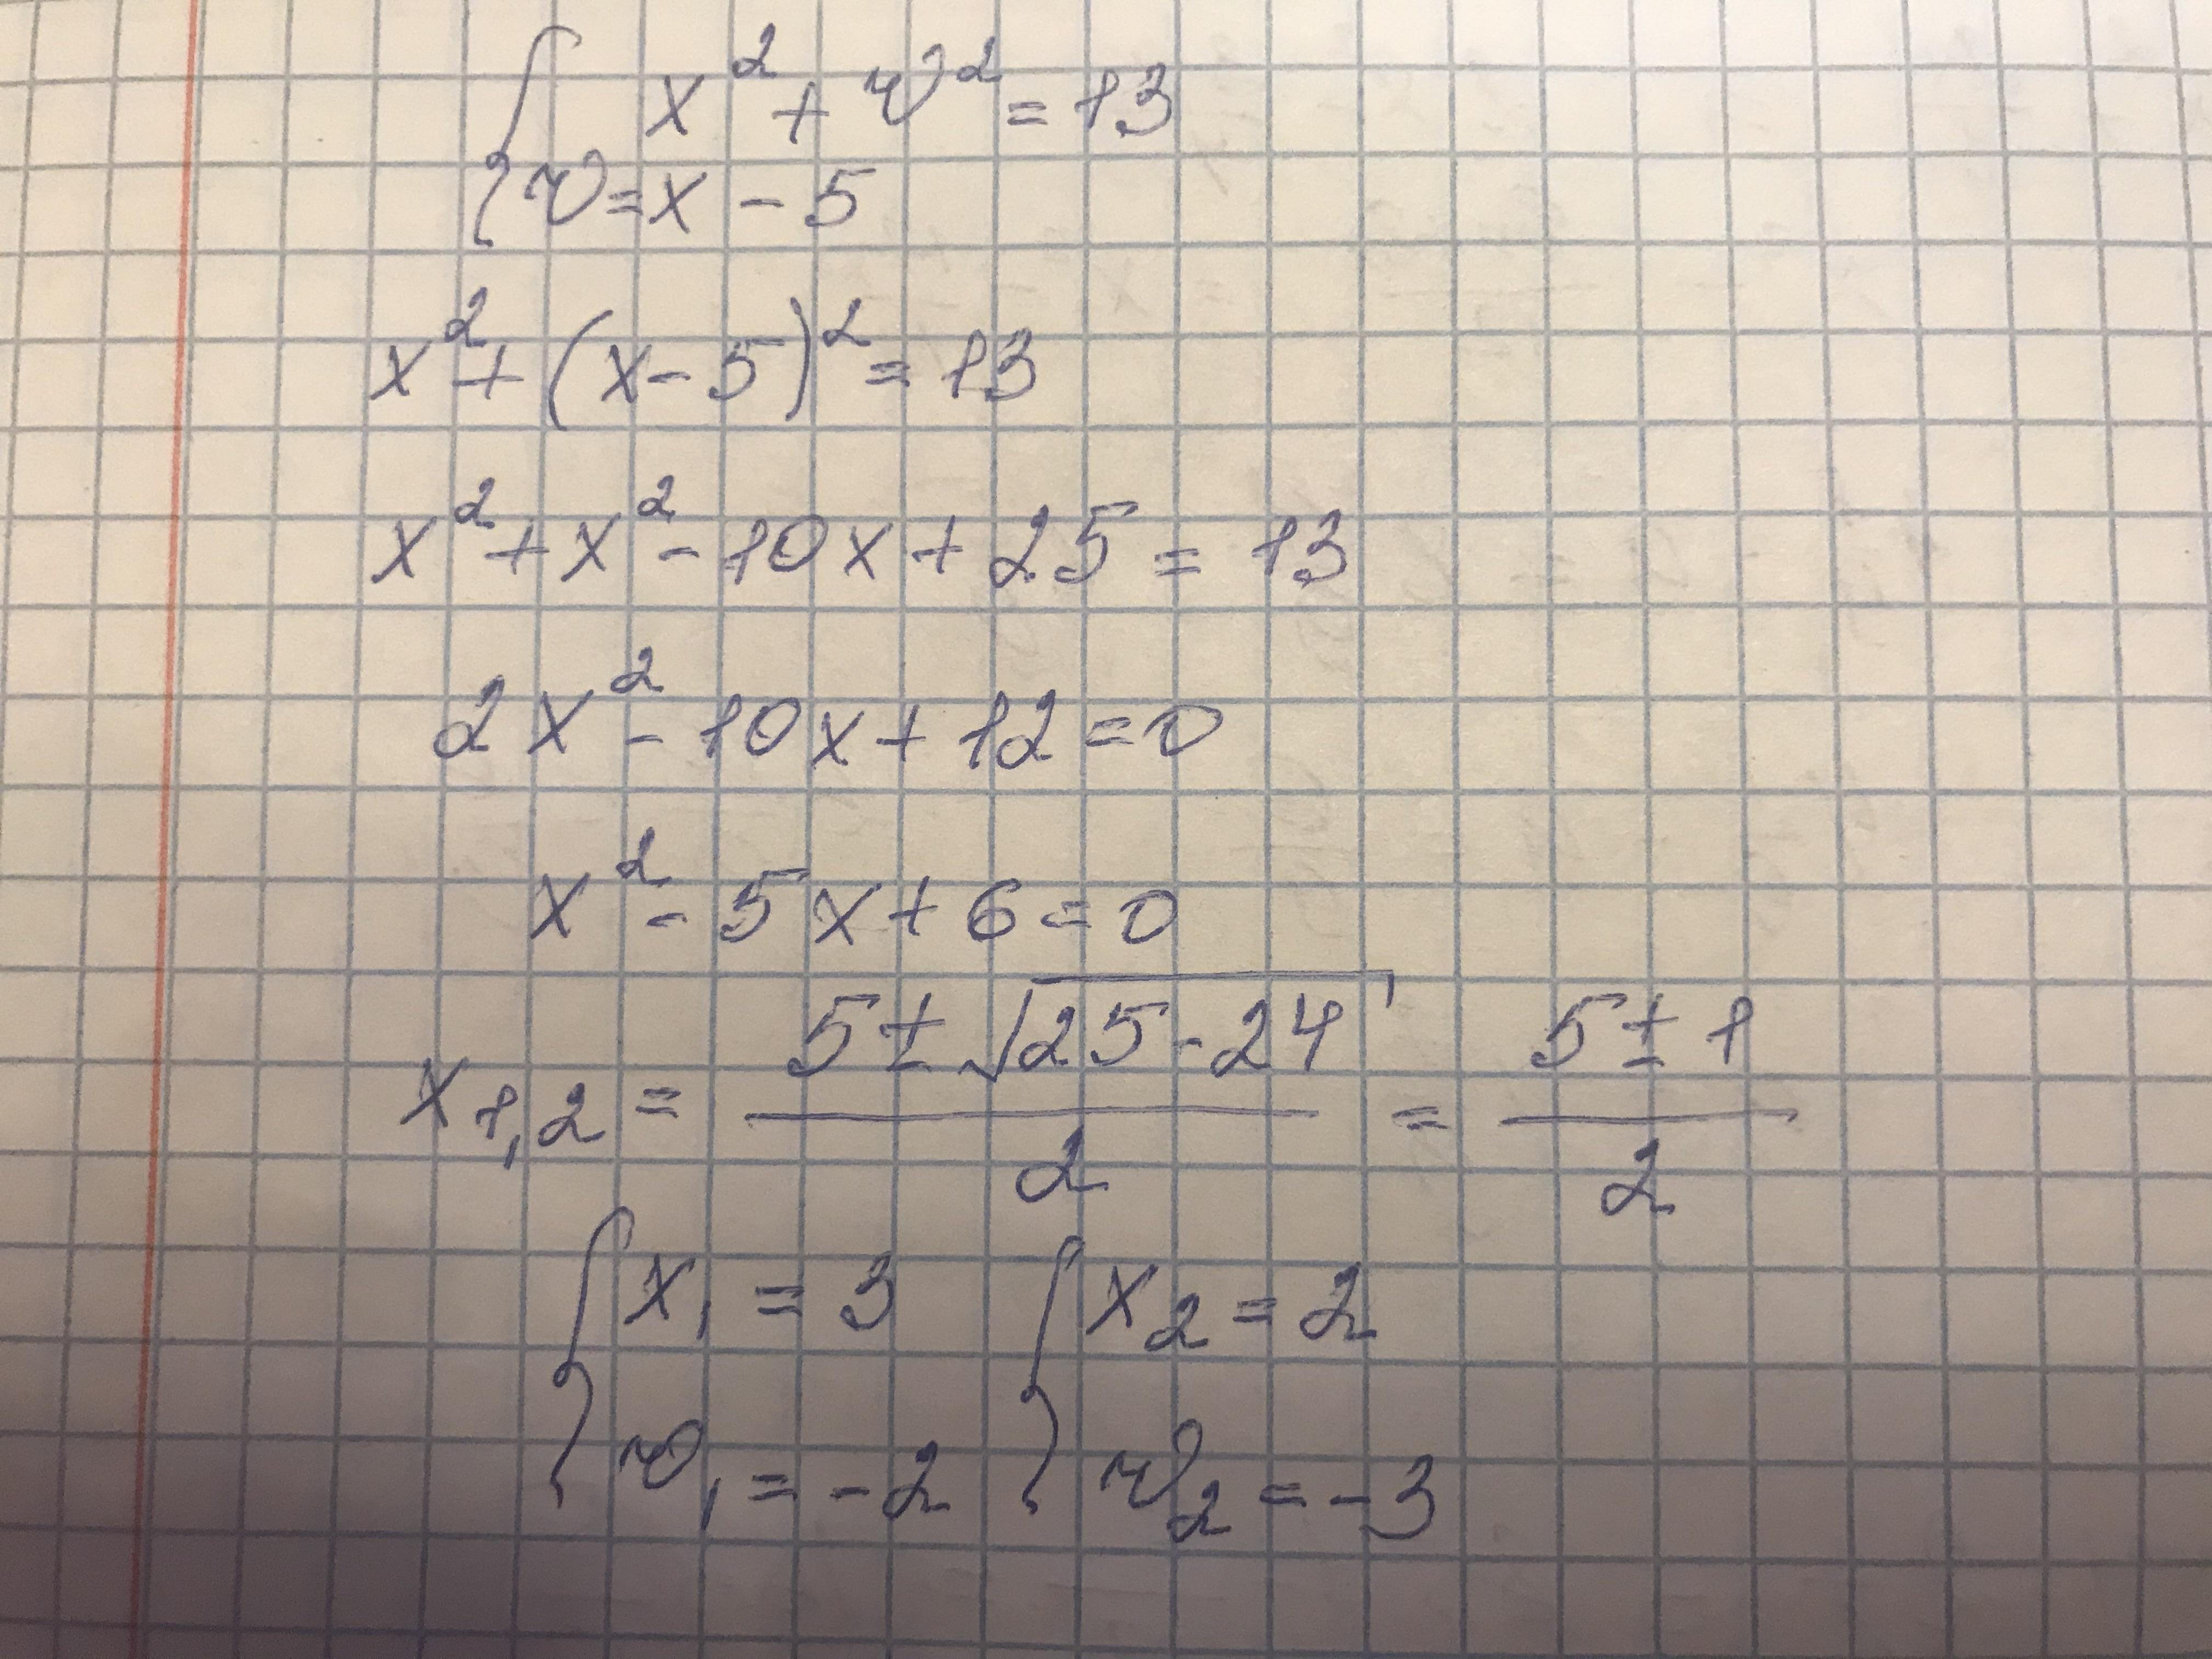 { x² + v² = 13
{ v = x - 5
x² + (x - 5)² = 13
x² + x² - 10x + 25 = 13
2x² - 10x + 12 = 0
x² - 5x + 6 = 0
x₁,₂ = (5 ± √(25 - 24))/2 = (5 ± 1)/2
{ x₁ = 3 { x₂ = 2
{ v₁ = -2 { v₂ = -3